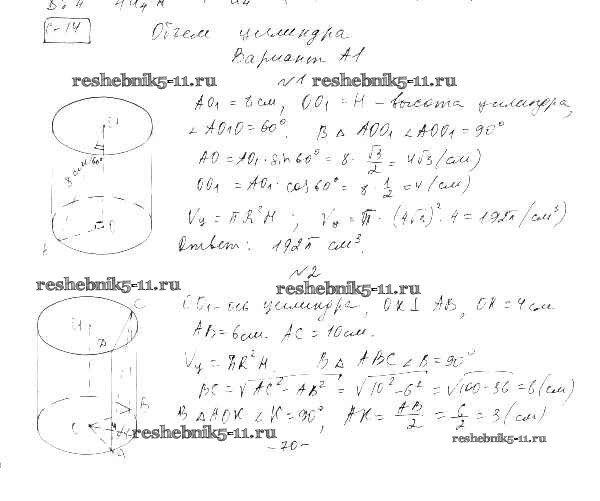 С-14
Объем цилиндра
Вариант А1
№1
reshebnik5-11.ru reshebnik5-11.ru
AO₁ = 8 см, OO₁ = H – высота цилиндра,
∠AO₁O = 60°. В △ AOO₁ ∠AOO₁ = 90°
AO = AO₁ · sin 60° = 8 · √3/2 = 4√3 (см)
OO₁ = AO₁ · cos 60° = 8 · 1/2 = 4 (см)
Vц = πR²H ; Vц = π · (4√3)² · 4 = 192π (см³)
Ответ: 192π см³.
8 см
60°
O1
O
A
№2
reshebnik5-11.ru reshebnik5-11.ru
OO₁ – ось цилиндра, OK ⊥ AB, OK = 4 см
AB = 6 см. AC = 10 см.
Vц = πR²H. В △ ABC ∠B = 90°
BC = √AC² - AB² = √10² - 6² = √100 - 36 = 8 (см)
В △ AOK ∠K = 90°, AK = AB/2 = 6/2 = 3 (см)
C
O1
D
B
O
K
A
reshebnik5-11.ru reshebnik5-11.ru
-20-